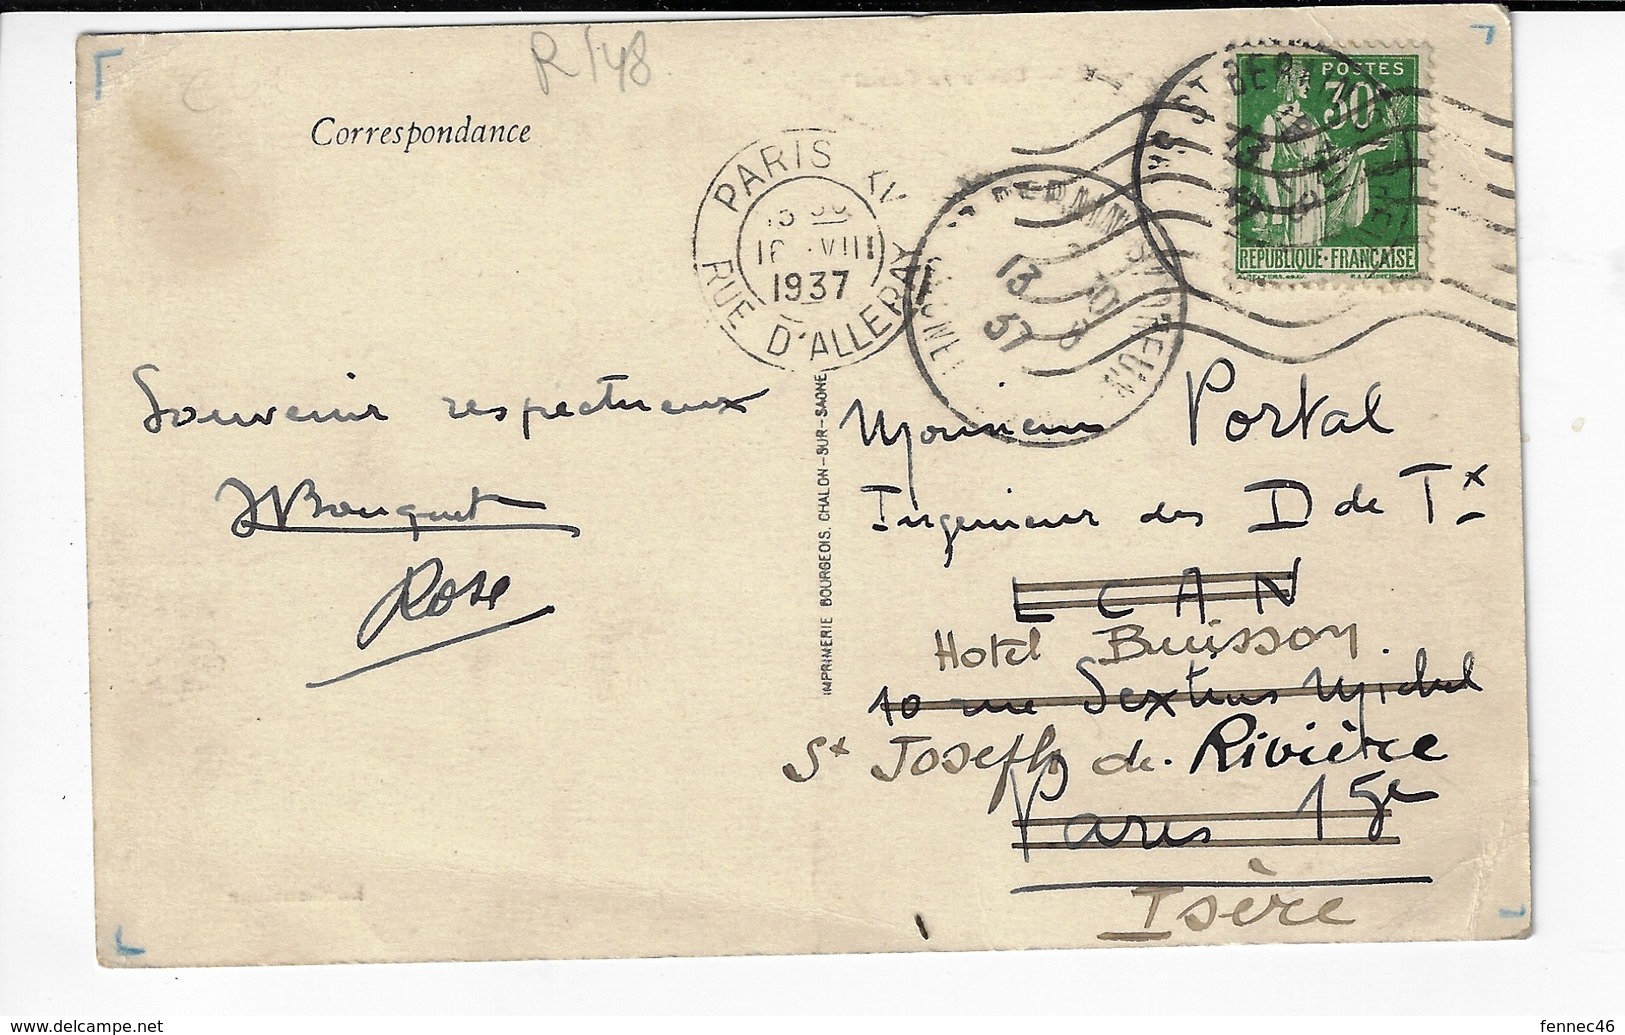 R 148
Correspondance
POSTES
30
REPUBLIQUE·FRANÇAISE
PARIS XV
RUE D'ALLERAY
1937
13 8
37
Souvenir respectueux
Bouquet
Rose
IMPRIMERIE BOURGEOIS. CHALON-SUR-SAONE
Monsieur Portal
Ingénieur des D de Tx
L C A N
Hotel Buisson.
10 rue Sextius Michel
St Joseph de. Rivière
Paris 15e
Isère
fennec46